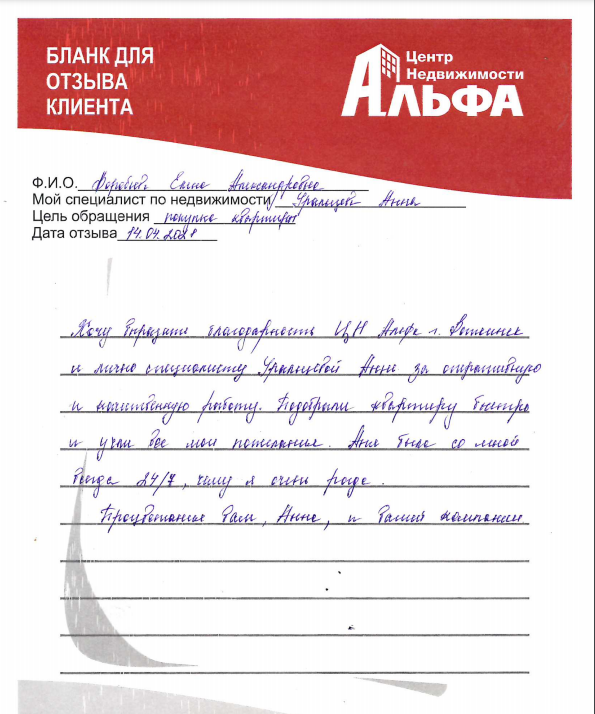 БЛАНК ДЛЯ
ОТЗЫВА
КЛИЕНТА
Центр
Недвижимости
АЛЬФА
Ф.И.О. Елена Александровна
Мой специалист по недвижимости Анна
Цель обращения покупка квартиры
Дата отзыва 14.04.2021
Хочу выразить благодарность ЦН Альфа г. Воткинск
и лично специалисту Уральцевой Анне за оперативную
и качественную работу. Подобрали квартиру быстро
и учли все мои пожелания. Аня была со мной
всегда 24/7, чему я очень рада.
Процветания Вам, Анна, и Вашей компании